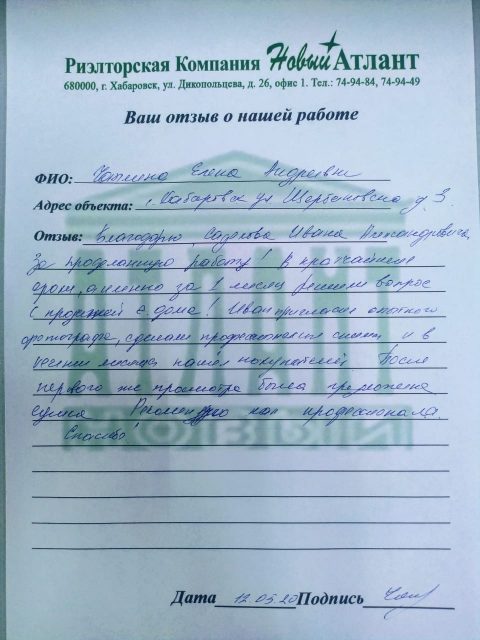 Риэлторская Компания Новый Атлант
680000, г. Хабаровск, ул. Дикопольцева, д. 26, офис 1. Тел.: 74-94-84, 74-94-49
Ваш отзыв о нашей работе
ФИО: Елена Андреевна
Адрес объекта: г. Хабаровск ул д 3.
Отзыв: Благодарю Ивана Александровича,
За проделанную работу! В кратчайшие
сроки, а именно за 1 месяц решили вопрос
с продажей дома! Иван пригласил опытного
фотографа, сделали профессионально и в
течении месяца нашел покупателей. После
первого же просмотра была предложена
сумма Рекомендую как профессионала.
Спасибо
Дата 12.05.20 Подпись